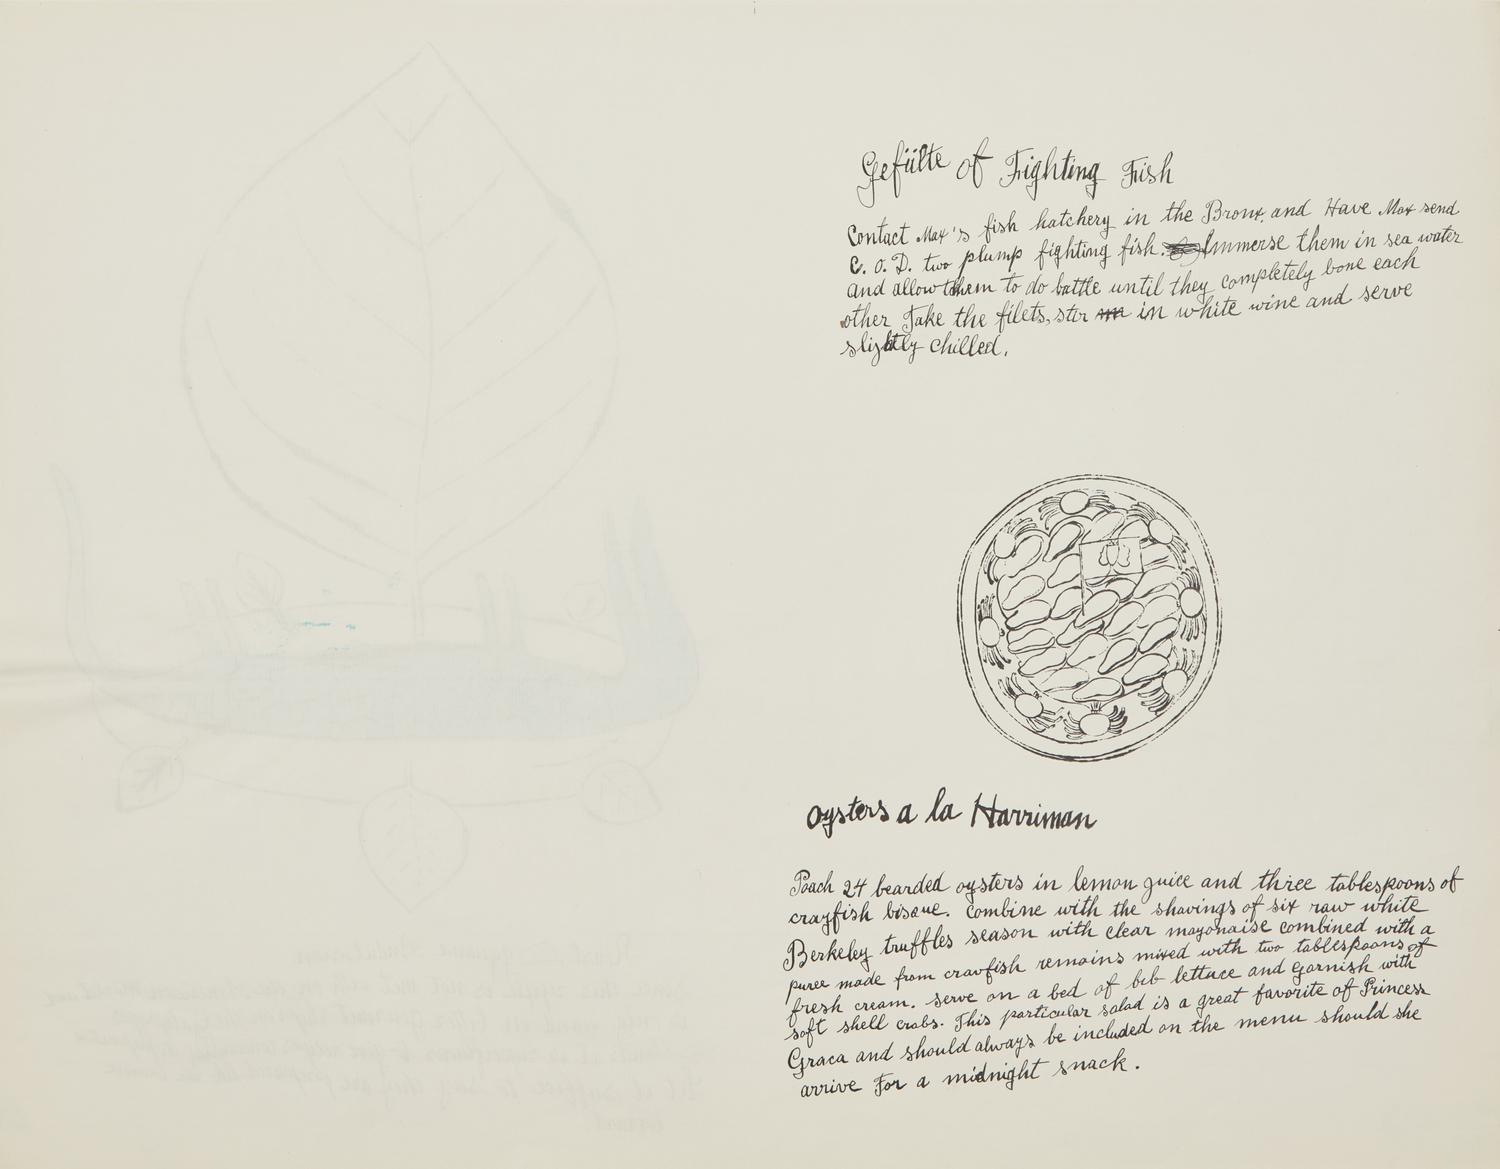 Gefülte of Fighting Fish
Contact Max's fish hatchery in the Bronx, and Have Max send
C. O. D. two plump fighting fish. Immerse them in sea water
and allow them to do battle until they completely bone each
other Take the filets, stir in white wine and serve
slightly chilled.
Oysters a la Harriman
Poach 24 bearded oysters in lemon juice and three tablespoons of
crayfish bisque. Combine with the shavings of six raw white
Berkeley truffles season with clear mayonaise combined with a
puree made from crawfish remains mixed with two tablespoons of
fresh cream. Serve on a bed of bib lettuce and garnish with
soft shell crabs. This particular salad is a great favorite of Princess
Graca and should always be included on the menu should she
arrive for a midnight snack.